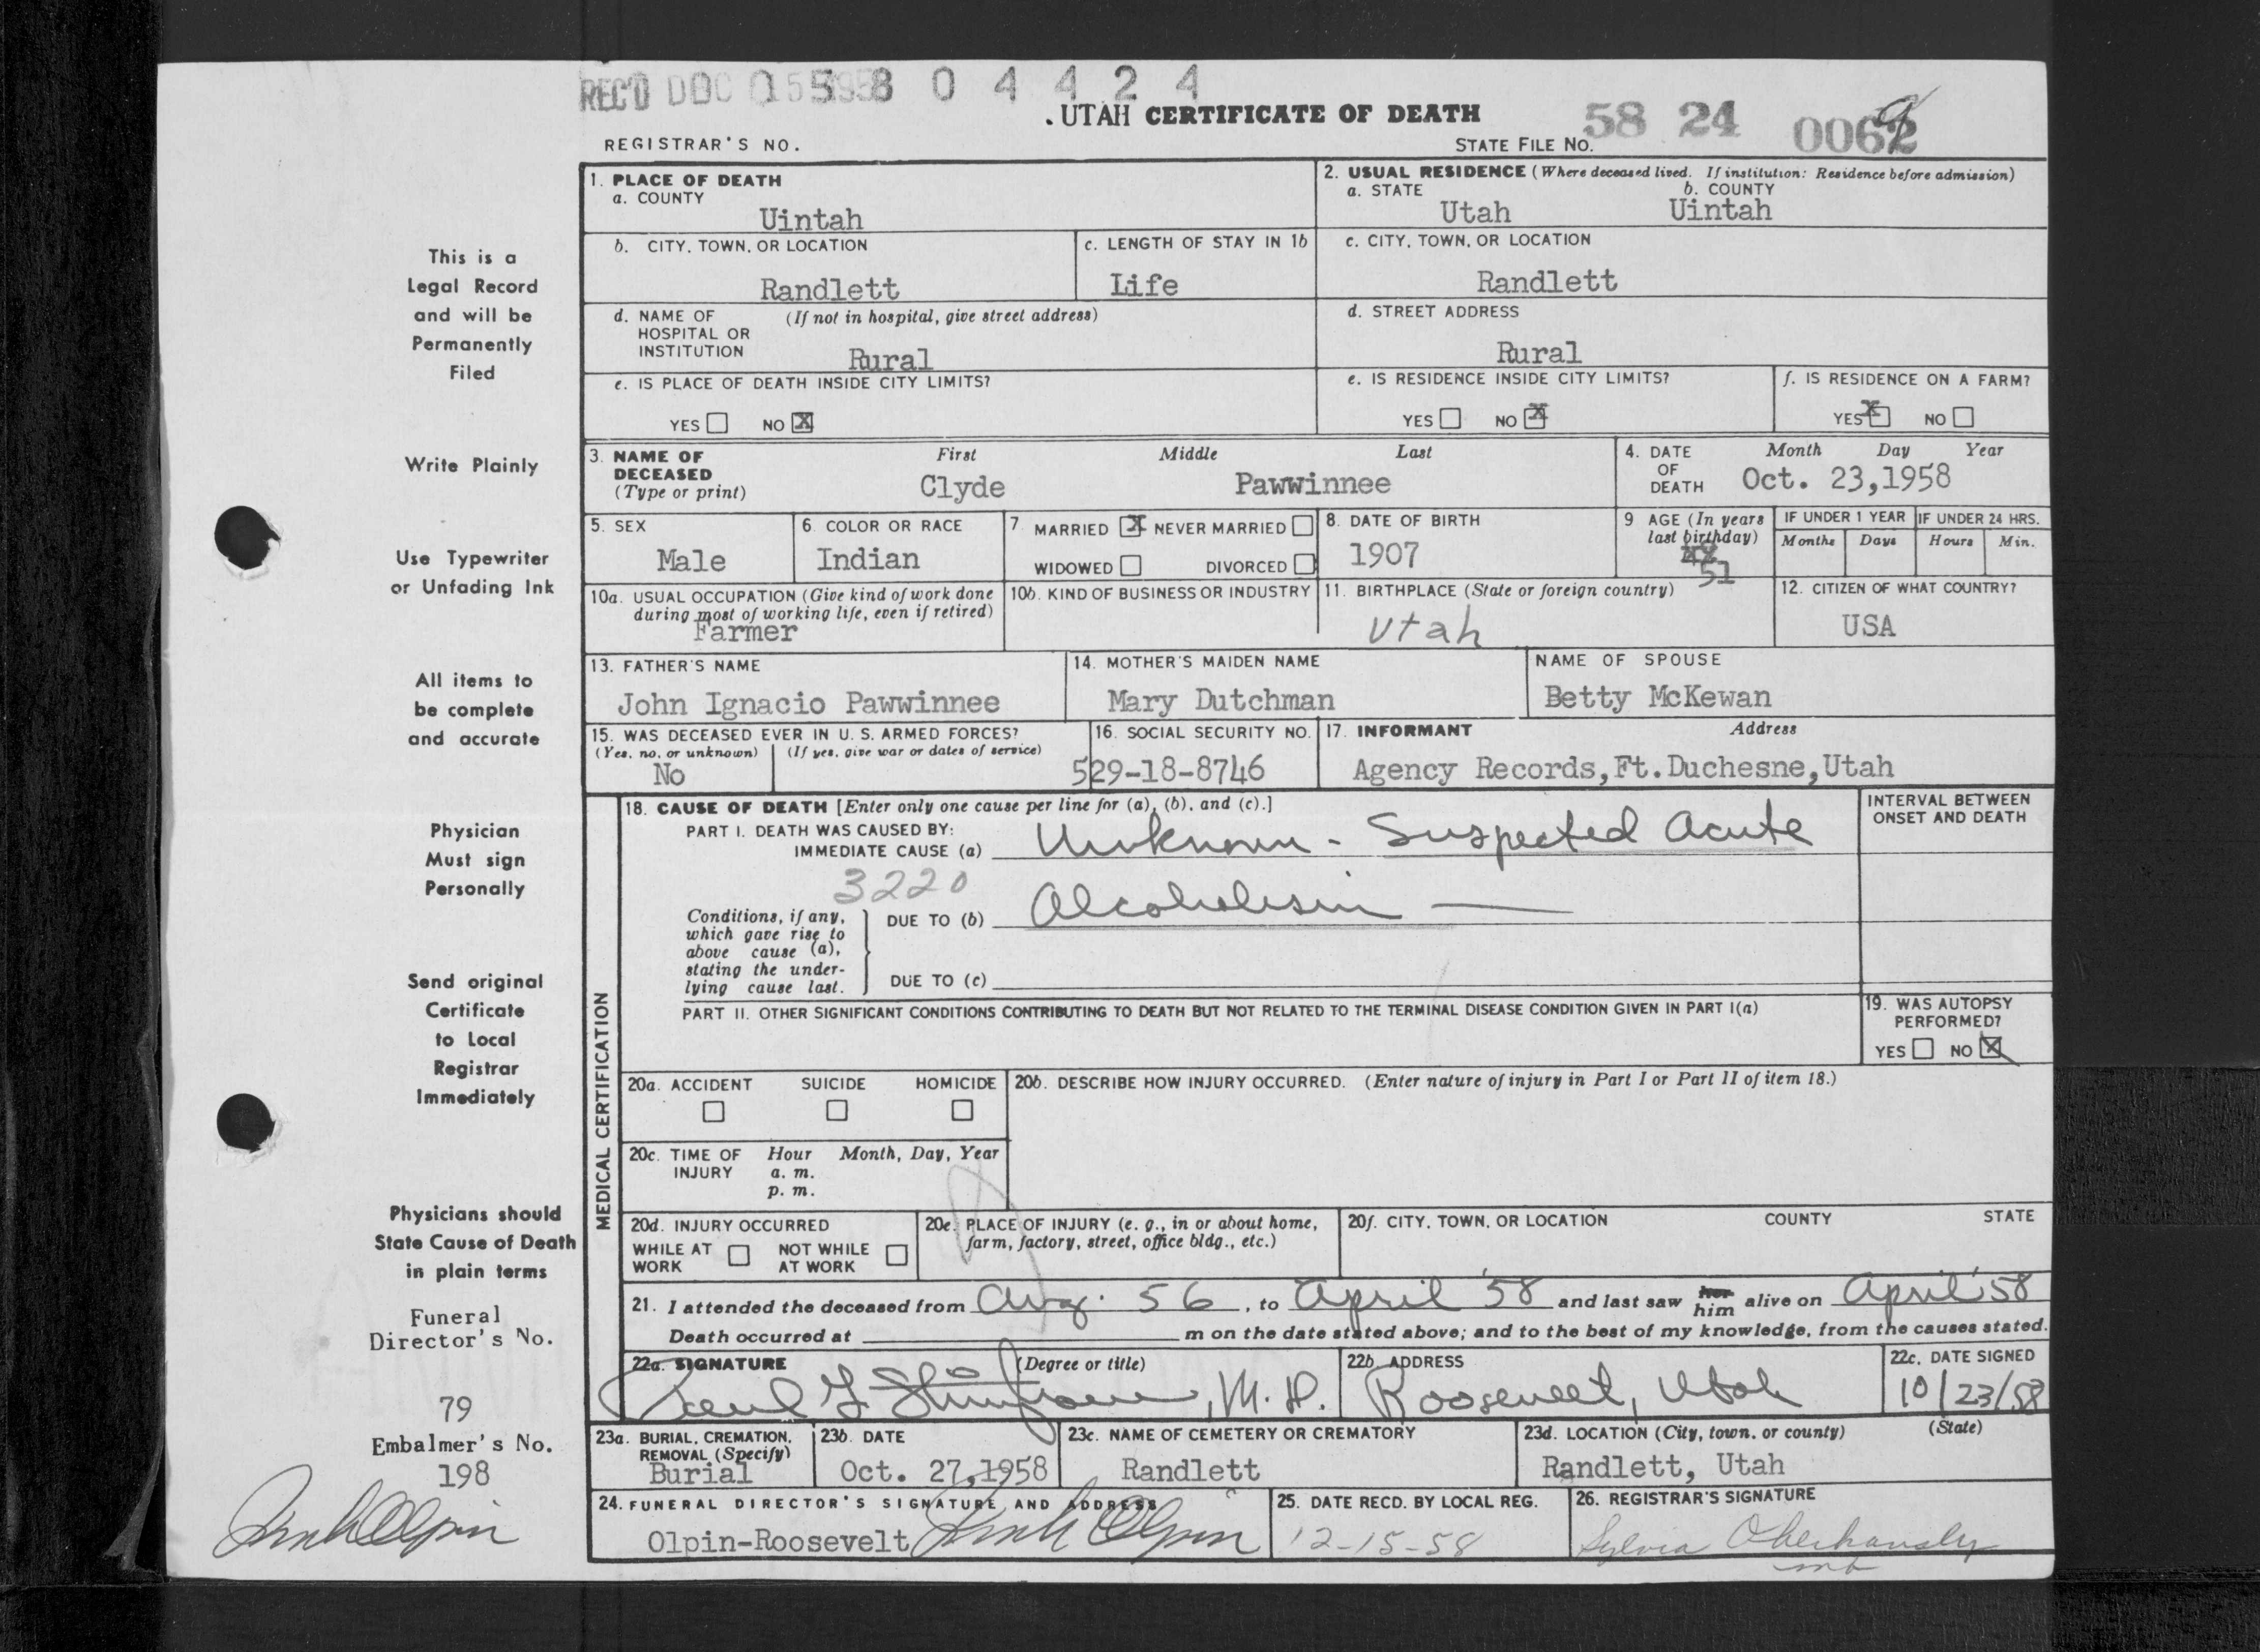 REC'D DEC 15 1958 0 4 4 2 4
UTAH CERTIFICATE OF DEATH
REGISTRAR'S NO.
STATE FILE NO. 58 24 0069
1. PLACE OF DEATH
a. COUNTY
Uintah
2. USUAL RESIDENCE (Where deceased lived. If institution: Residence before admission)
a. STATE b. COUNTY
Utah Uintah
b. CITY, TOWN, OR LOCATION
Randlett
c. LENGTH OF STAY IN 1b
Life
c. CITY, TOWN, OR LOCATION
Randlett
d. NAME OF HOSPITAL OR INSTITUTION (If not in hospital, give street address)
Rural
d. STREET ADDRESS
Rural
e. IS PLACE OF DEATH INSIDE CITY LIMITS?
YES NO X
e. IS RESIDENCE INSIDE CITY LIMITS?
YES NO X
f. IS RESIDENCE ON A FARM?
YES X NO
3. NAME OF DECEASED (Type or print)
First Middle Last
Clyde Pawwinnee
4. DATE OF DEATH
Month Day Year
Oct. 23,1958
5. SEX
Male
6. COLOR OR RACE
Indian
7. MARRIED X NEVER MARRIED
WIDOWED DIVORCED
8. DATE OF BIRTH
1907
9 AGE (In years last birthday)
51
IF UNDER 1 YEAR
Months Days
IF UNDER 24 HRS.
Hours Min.
10a. USUAL OCCUPATION (Give kind of work done during most of working life, even if retired)
Farmer
10b. KIND OF BUSINESS OR INDUSTRY
11. BIRTHPLACE (State or foreign country)
Utah
12. CITIZEN OF WHAT COUNTRY?
USA
13. FATHER'S NAME
John Ignacio Pawwinnee
14. MOTHER'S MAIDEN NAME
Mary Dutchman
NAME OF SPOUSE
Betty McKewan
15. WAS DECEASED EVER IN U. S. ARMED FORCES?
(Yes, no, or unknown) (If yes, give war or dates of service)
No
16. SOCIAL SECURITY NO.
529-18-8746
17. INFORMANT Address
Agency Records,Ft.Duchesne,Utah
MEDICAL CERTIFICATION
18. CAUSE OF DEATH [Enter only one cause per line for (a), (b), and (c).]
PART I. DEATH WAS CAUSED BY:
IMMEDIATE CAUSE (a) Unknown - Suspected Acute
3220
Conditions, if any, which gave rise to above cause (a), stating the underlying cause last.
DUE TO (b) Alcoholism —
DUE TO (c)
INTERVAL BETWEEN ONSET AND DEATH
PART II. OTHER SIGNIFICANT CONDITIONS CONTRIBUTING TO DEATH BUT NOT RELATED TO THE TERMINAL DISEASE CONDITION GIVEN IN PART I(a)
19. WAS AUTOPSY PERFORMED?
YES NO X
20a. ACCIDENT SUICIDE HOMICIDE
20b. DESCRIBE HOW INJURY OCCURRED. (Enter nature of injury in Part I or Part II of item 18.)
20c. TIME OF INJURY Hour Month, Day, Year
a. m.
p. m.
20d. INJURY OCCURRED
WHILE AT WORK NOT WHILE AT WORK
20e. PLACE OF INJURY (e. g., in or about home, farm, factory, street, office bldg., etc.)
20f. CITY, TOWN, OR LOCATION COUNTY STATE
21. I attended the deceased from Aug. 56, to April '58 and last saw her him alive on April '58
Death occurred at m on the date stated above; and to the best of my knowledge, from the causes stated.
22a. SIGNATURE (Degree or title)
Paul G Stringham, M.D.
22b. ADDRESS
Roosevelt, Utah
22c. DATE SIGNED
10/23/58
23a. BURIAL, CREMATION, REMOVAL (Specify)
Burial
23b. DATE
Oct. 27,1958
23c. NAME OF CEMETERY OR CREMATORY
Randlett
23d. LOCATION (City, town, or county) (State)
Randlett, Utah
24. FUNERAL DIRECTOR'S SIGNATURE AND ADDRESS
Olpin-Roosevelt Olpin
25. DATE RECD. BY LOCAL REG.
12-15-58
26. REGISTRAR'S SIGNATURE
Sylvia Oberhansly
mb
This is a
Legal Record
and will be
Permanently
Filed
Write Plainly
Use Typewriter
or Unfading Ink
All items to
be complete
and accurate
Physician
Must sign
Personally
Send original
Certificate
to Local
Registrar
Immediately
Physicians should
State Cause of Death
in plain terms
Funeral
Director's No.
79
Embalmer's No.
198
Olpin